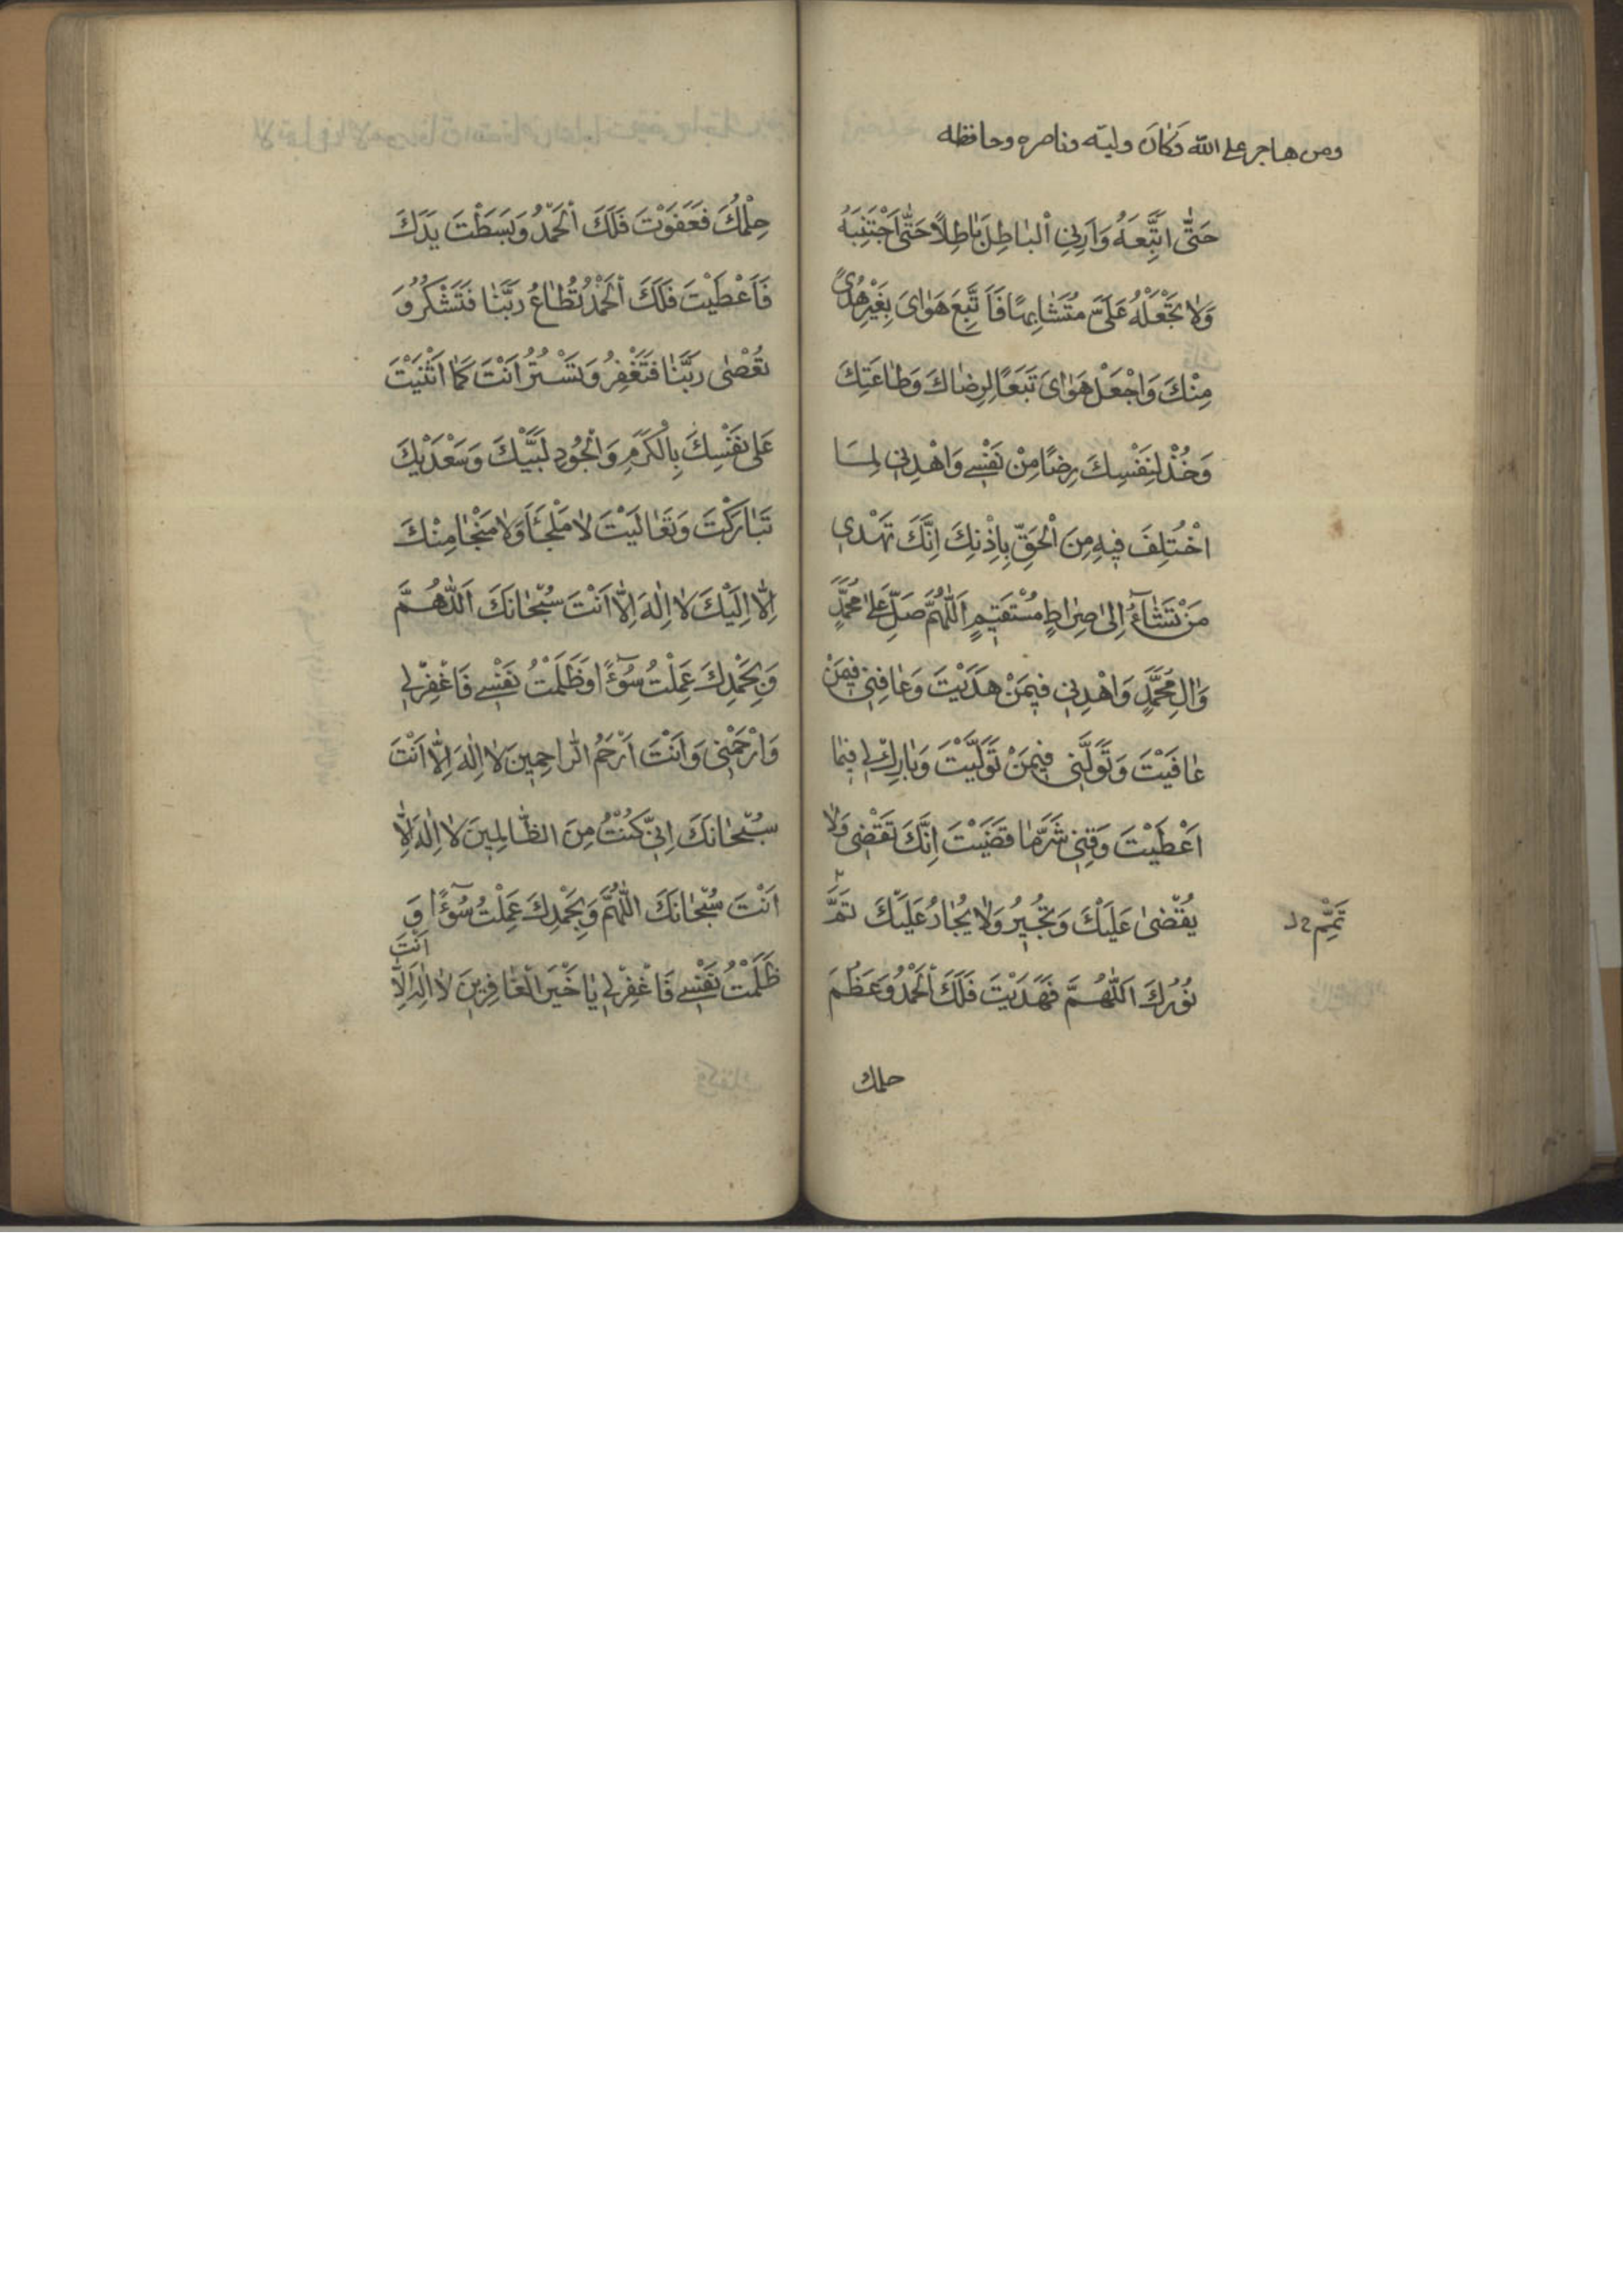 ومن هاجر على الله وَكَانَ وليّه وناصره وحافظه
حَتّٰى اَتَّبِعَهُ وَاَرِنِي اْلبٰاطِلَ بٰاطِلًا حَتّٰى اَجْتَنِبَهُ
وَلٰا تَجْعَلْهُ عَلَىَّ مُتَشٰابِهًا فَاَتَّبِعَ هَوٰاىَ بِغَيْرِ هُدًى
مِنْكَ وَاجْعَلْ هَوٰاىَ تَبَعًا لِرِضٰاكَ وَطٰاعَتِكَ
وَخُذْ لِنَفْسِكَ رِضًا مِنْ نَفْسِي وَاهْدِنِي لِمَا
اخْتُلِفَ فِيهِ مِنَ اْلحَقِّ بِاِذْنِكَ اِنَّكَ تَهْدِي
مَنْ تَشٰآءُ اِلىٰ صِرٰاطٍ مُسْتَقِيمٍ اَللّٰهُمَّ صَلِّ عَلىٰ مُحَمَّدٍ
وَاٰلِ مُحَمَّدٍ وَاهْدِنِي فِيمَنْ هَدَيْتَ وَعٰافِنِي فِيمَنْ
عٰافَيْتَ وَتَوَلَّنِي فِيمَنْ تَوَلَّيْتَ وَبٰارِكْ لِي فِيمٰا
اَعْطَيْتَ وَقِنِي شَرَّ مٰا قَضَيْتَ اِنَّكَ تَقْضِى وَلٰا
يُقْضىٰ عَلَيْكَ وَتُجِيرُ وَلٰا يُجٰارُ عَلَيْكَ تَمَّ
تَمِّمْ
نُورُكَ اَللّٰهُمَّ فَهَدَيْتَ فَلَكَ اْلحَمْدُ وَعَظُمَ
حلمك
حِلْمُكَ فَعَفَوْتَ فَلَكَ اْلحَمْدُ وَبَسَطْتَ يَدَكَ
فَاَعْطَيْتَ فَلَكَ اْلحَمْدُ تُطٰاعُ رَبَّنٰا فَتَشْكُرُ وَ
تُعْصٰى رَبَّنٰا فَتَغْفِرُ وَتَسْتُرُ اَنْتَ كَمٰا اَثْنَيْتَ
عَلىٰ نَفْسِكَ بِاْلكَرَمِ وَاْلجُودِ لَبَّيْكَ وَسَعْدَيْكَ
تَبٰارَكْتَ وَتَعٰالَيْتَ لٰا مَلْجَأَ وَلٰا مَنْجٰا مِنْكَ
اِلّٰا اِلَيْكَ لٰا اِلٰهَ اِلّٰا اَنْتَ سُبْحٰانَكَ اَللّٰهُمَّ
وَبِحَمْدِكَ عَمِلْتُ سُوٓءًا وَظَلَمْتُ نَفْسِي فَاغْفِرْ لِي
وَارْحَمْنِي وَاَنْتَ اَرْحَمُ الرّٰاحِمِينَ لٰا اِلٰهَ اِلّٰا اَنْتَ
سُبْحٰانَكَ اِنِّي كُنْتُ مِنَ الظّٰالِمِينَ لٰا اِلٰهَ اِلّٰا
اَنْتَ سُبْحٰانَكَ اللّٰهُمَّ وَبِحَمْدِكَ عَمِلْتُ سُوٓءًا وَ
ظَلَمْتُ نَفْسِي فَاغْفِرْ لِي يٰا خَيْرَ اْلغٰافِرِينَ لٰا اِلٰهَ اِلّٰا
اَنْتَ